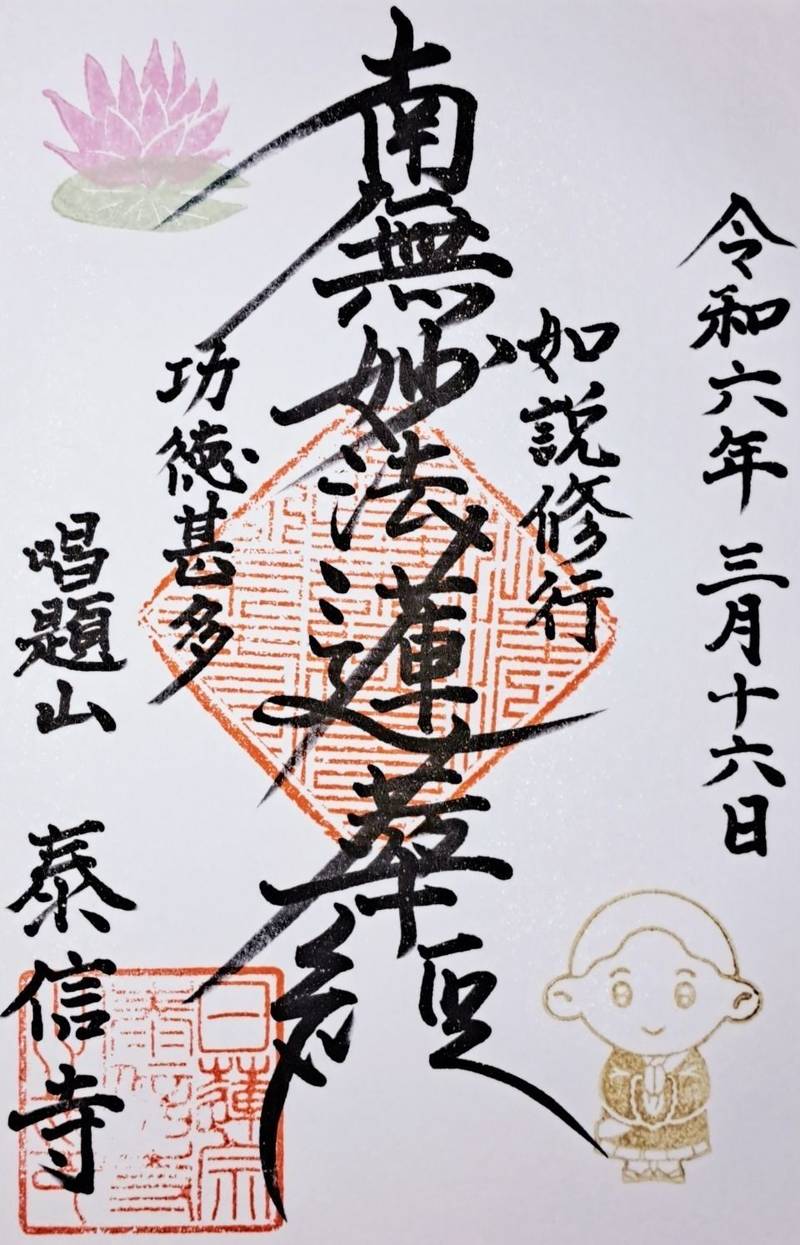 令和六年 三月十六日
如説修行
南無妙法蓮華経
功徳甚多
唱題山 泰信寺
日蓮宗